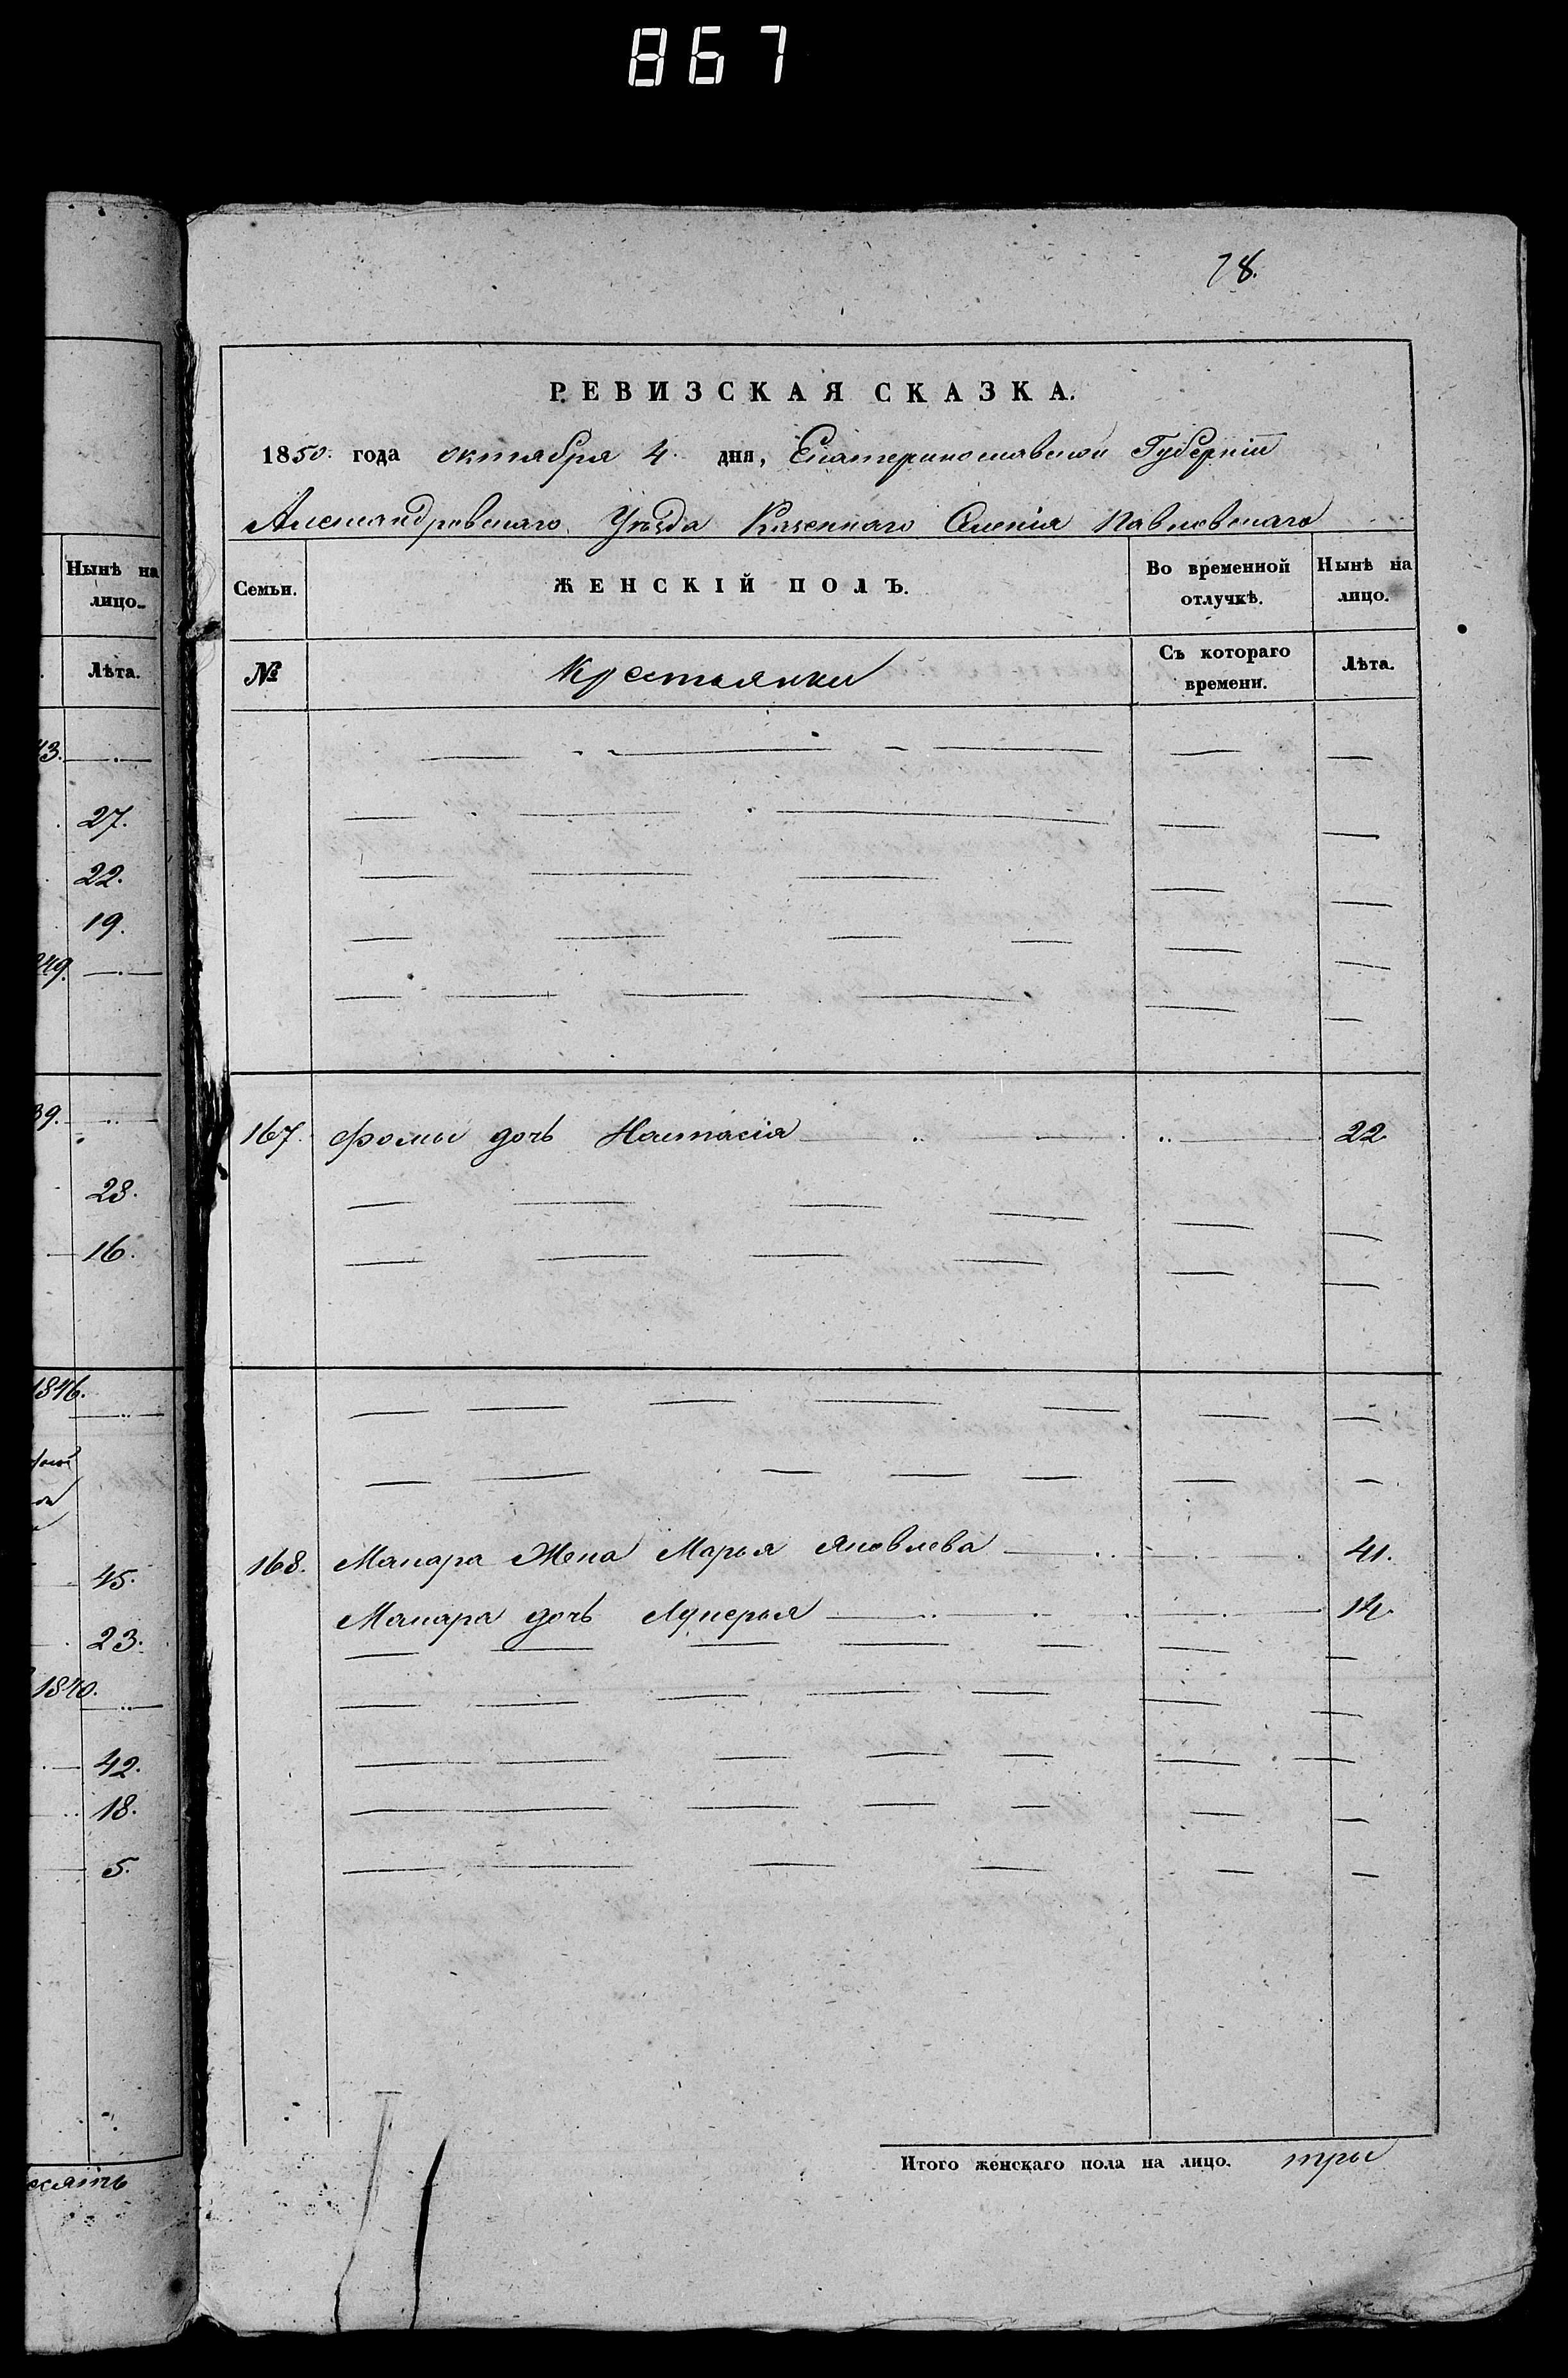 867
78.
РЕВИЗСКАЯ СКАЗКА.
1850. года октября 4. дня, Екатеринославской Губерніи
Александровскаго Уѣзда Казеннаго Селенія Павловскаго
Нынѣ на
лицо.
Лѣта.
43.
27.
22.
19.
849.
39.
28.
16.
1846.
45.
23.
1840.
42.
18.
5.
Семьи. ЖЕНСКІЙ ПОЛЪ. Во временной отлучкѣ. Нынѣ на лицо.
№ Крестьянки Съ котораго времени. Лѣта.
167. Фомы дочь Настасія 22
168. Макара Жена Марья Яковлева 41.
Макара дочь Лукерья 14.
Итого женскаго пола на лицо. три